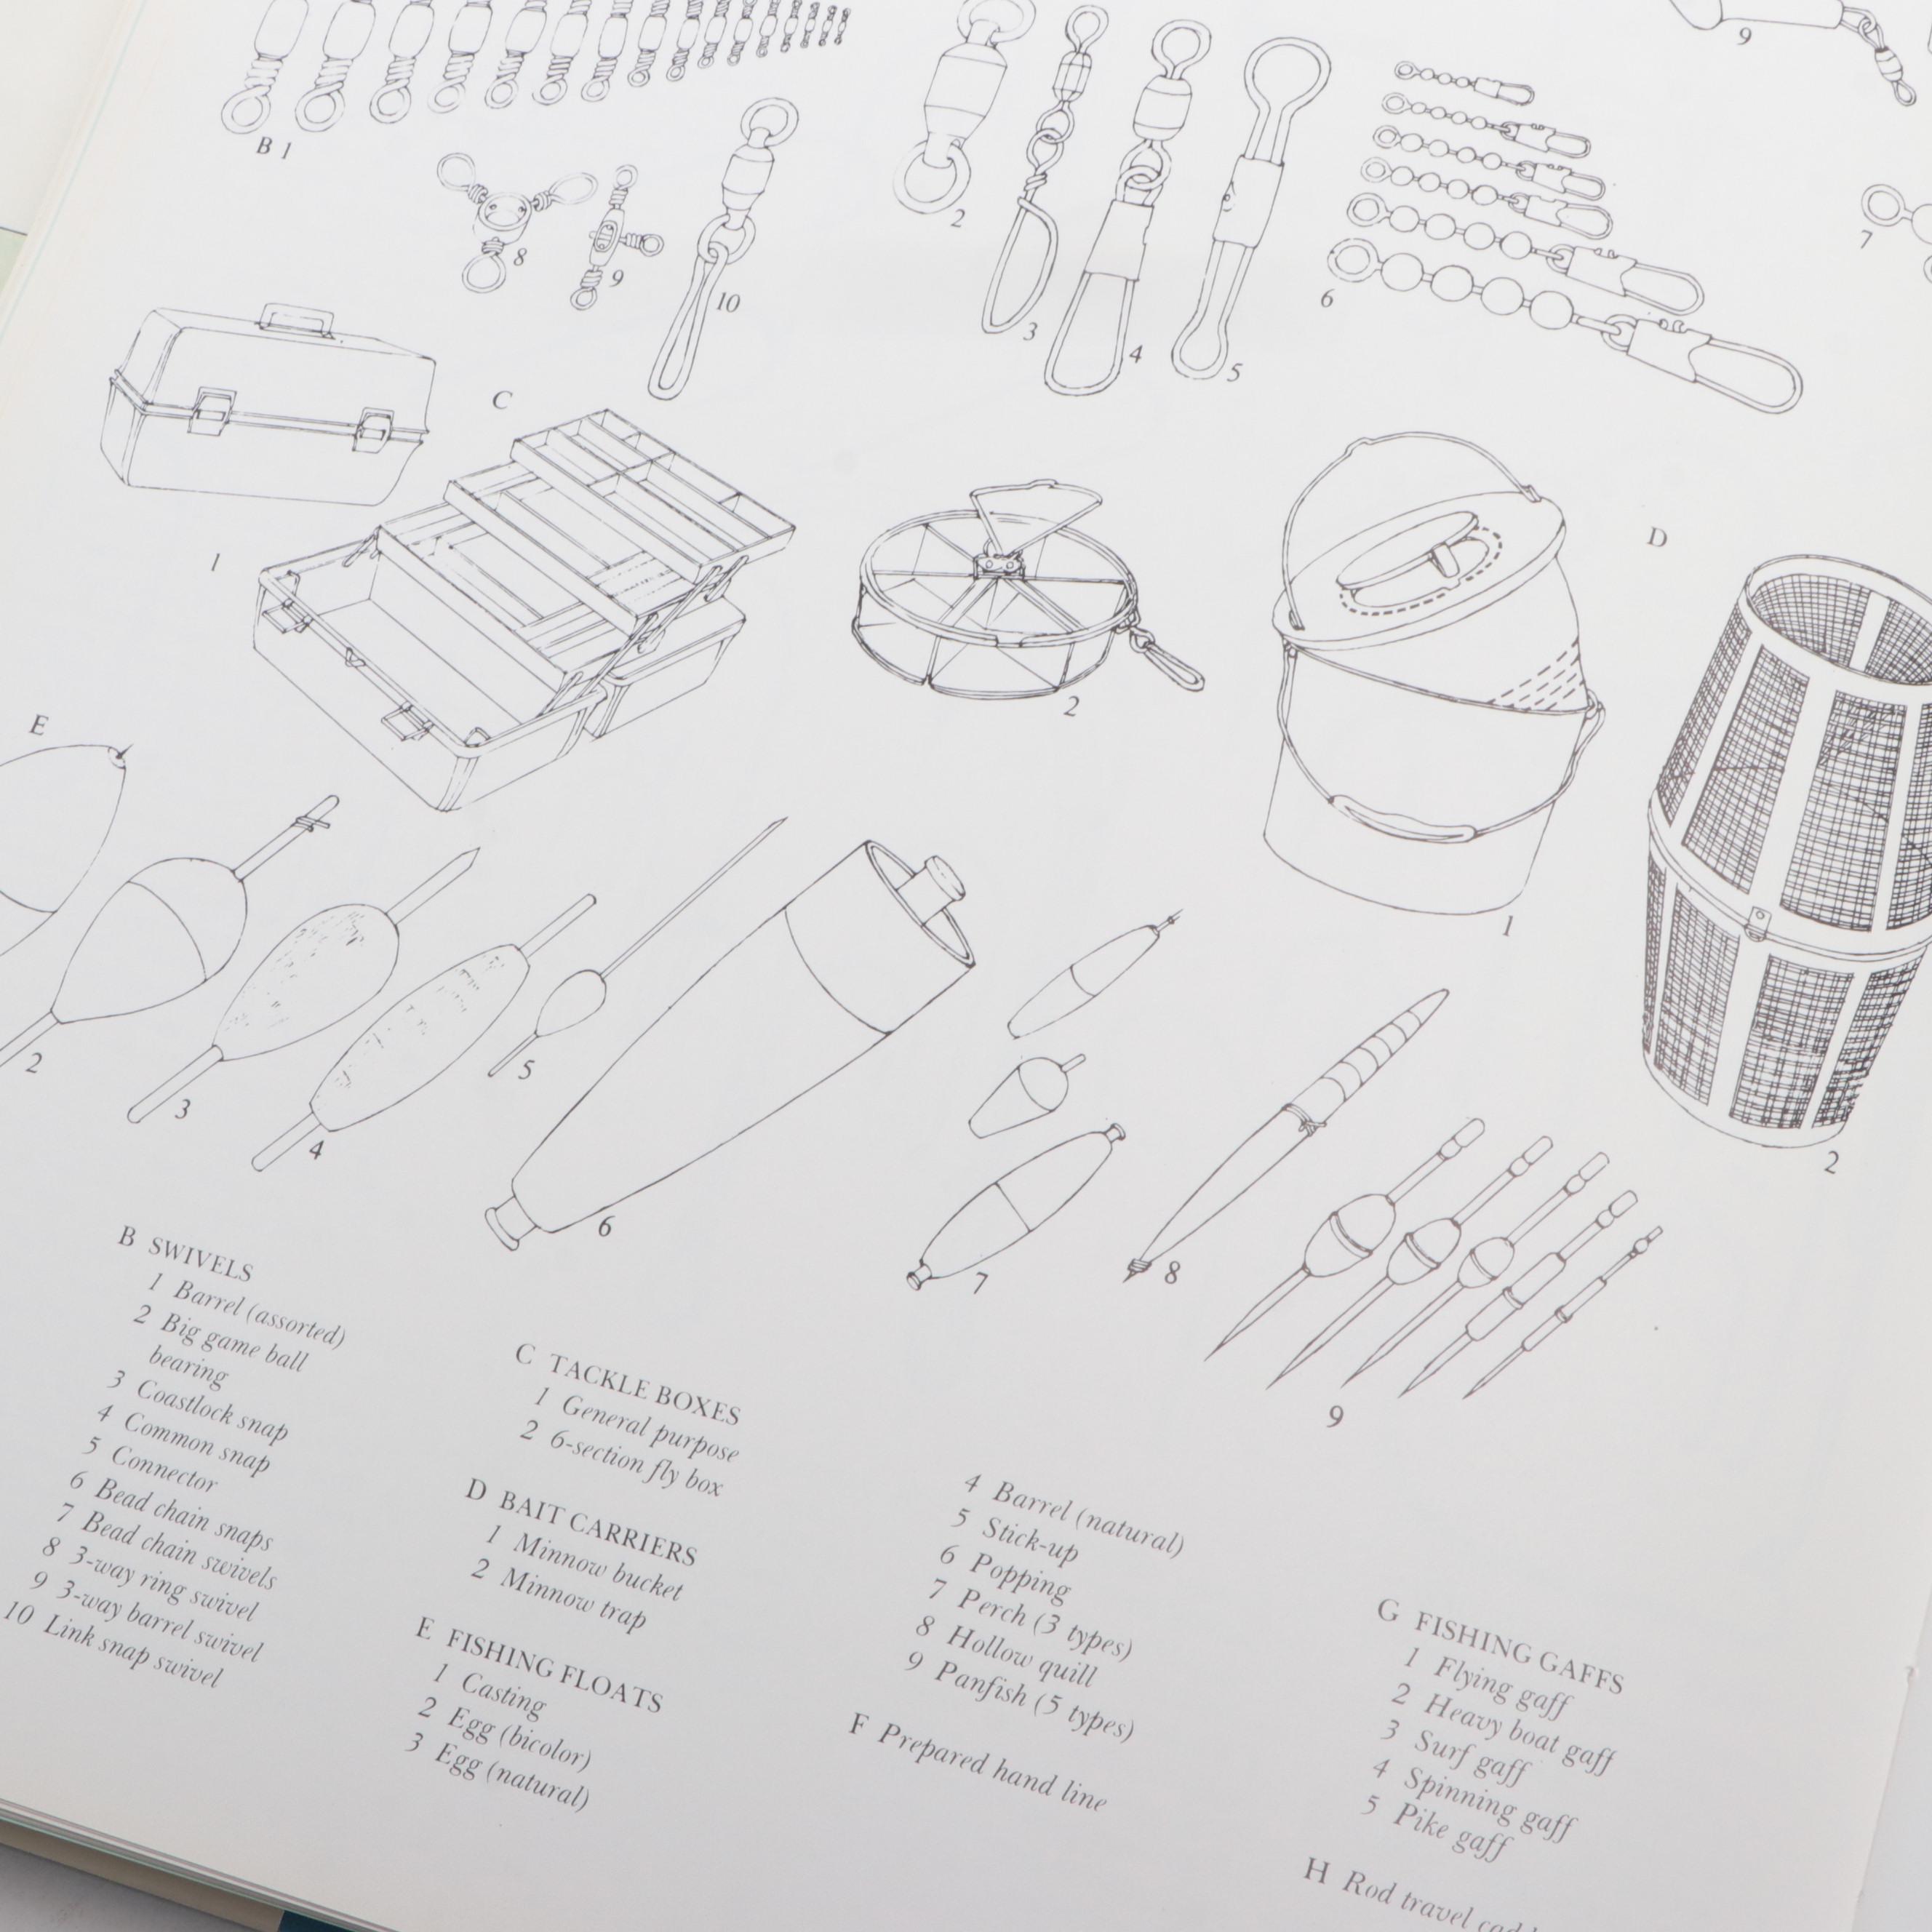 9
B 1
2
8
9
10
3
4
5
6
7
C
D
1
2
E
1
2
2
3
4
5
6
7
8
9
B SWIVELS
1 Barrel (assorted)
2 Big game ball
bearing
3 Coastlock snap
4 Common snap
5 Connector
6 Bead chain snaps
7 Bead chain swivels
8 3-way ring swivel
9 3-way barrel swivel
10 Link snap swivel
C TACKLE BOXES
1 General purpose
2 6-section fly box
D BAIT CARRIERS
1 Minnow bucket
2 Minnow trap
E FISHING FLOATS
1 Casting
2 Egg (bicolor)
3 Egg (natural)
4 Barrel (natural)
5 Stick-up
6 Popping
7 Perch (3 types)
8 Hollow quill
9 Panfish (5 types)
F Prepared hand line
G FISHING GAFFS
1 Flying gaff
2 Heavy boat gaff
3 Surf gaff
4 Spinning gaff
5 Pike gaff
H Rod travel